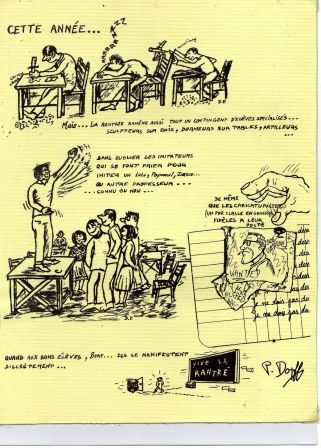 CETTE ANNÉE...
ZZ
Mais... LA RENTRÉE RAMÈNE AUSSI TOUT UN CONTINGENT D'ÉLÈVES SPÉCIALISÉS...
SCULPTEURS SUR BOIS, DORMEURS SUR TABLES, ARTILLEURS
...
SANS OUBLIER LES IMITATEURS
QUI SE FONT PRIER POUR
IMITER UN
OU AUTRE PROFESSEUR...
CONNU OU NON...
DE MÊME
QUE LES CARICATURISTES
(UN PAR CLASSE EN GÉNÉRAL)
FIDÈLES À LEUR
POSTE
WANTED
dois
je ne dois pas de
je ne dois pas de
QUAND AUX BONS ÉLÈVES, BOF... ILS SE MANIFESTENT
DISCRÈTEMENT...
VIVE LA
RANTRÉ